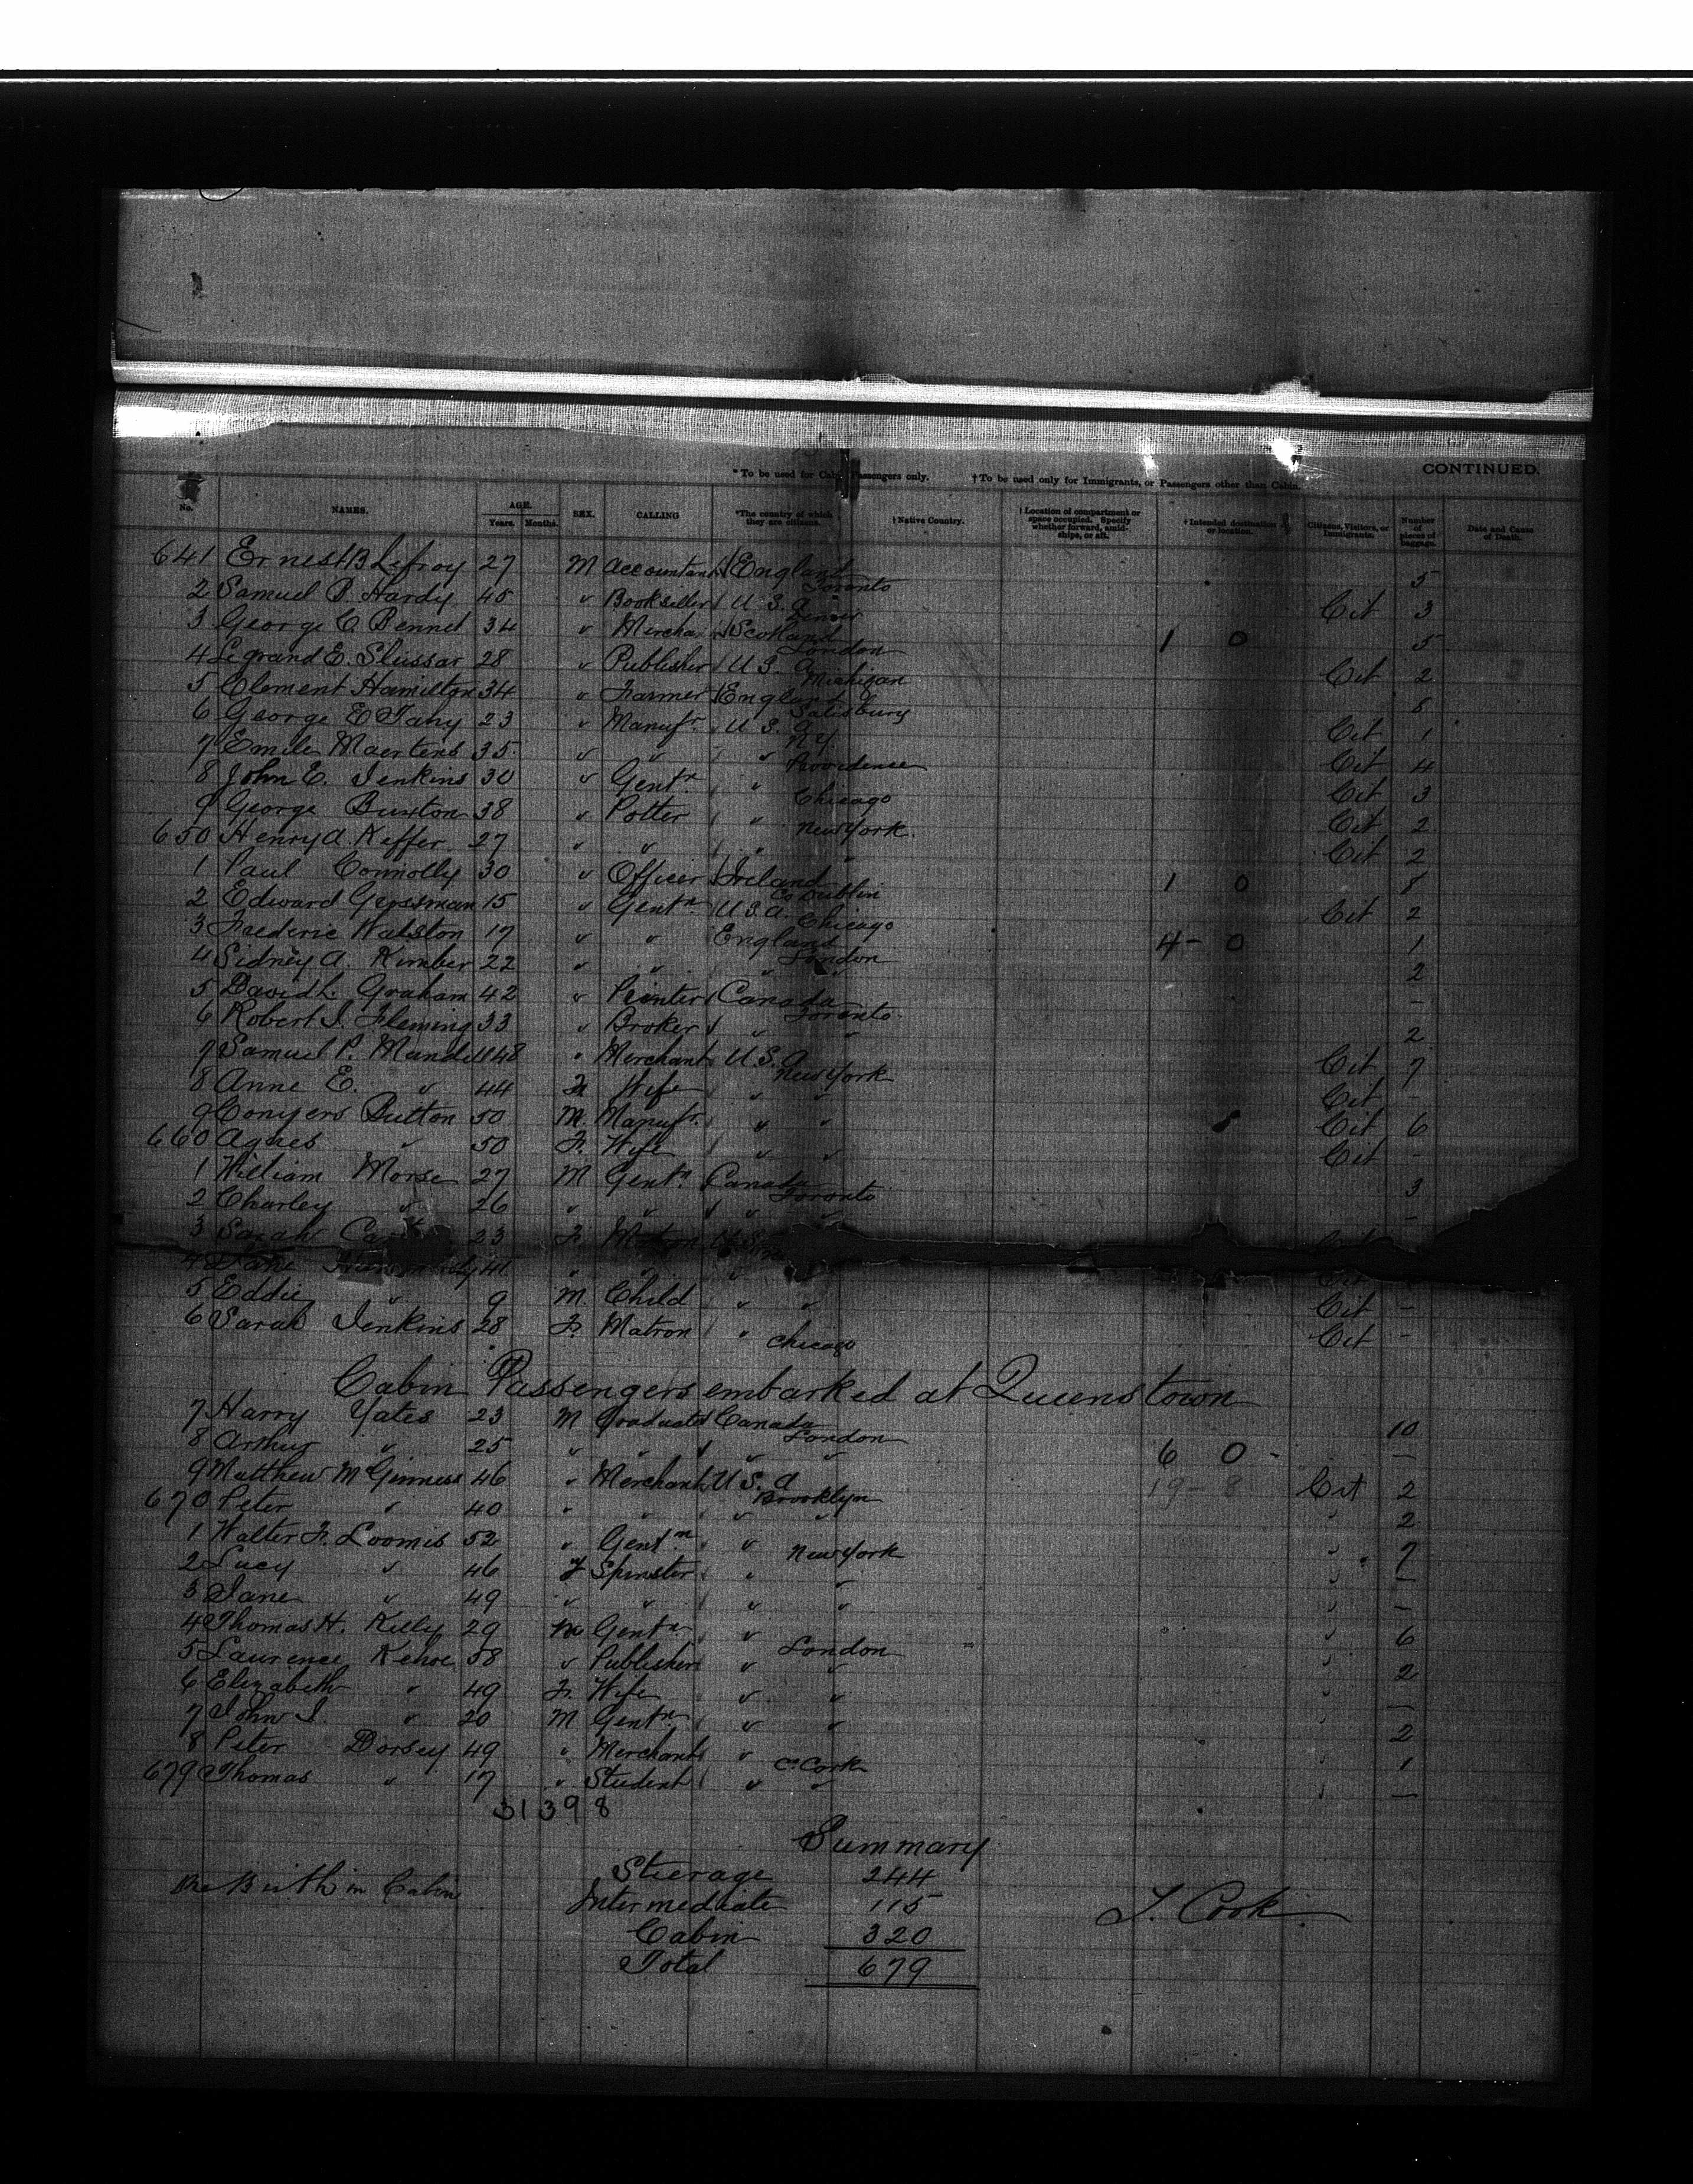 CONTINUED.
* To be used for Cabin Passengers only. † To be used only for Immigrants, or Passengers other than Cabin.
No. NAMES. AGE. Years. Months. SEX. CALLING *The country of which they are citizens. † Native Country. † Location of compartment or space occupied. Specify whether forward, amidships, or aft. † Intended destination or location. Citizens, Visitors, or Immigrants. Number of pieces of baggage. Date and Cause of Death.
641 Ernest B Lefroy 27 M Accountant England Toronto 5
2 Samuel P. Hardy 45 " Bookseller U.S.A Denver Cit 3
3 George C. Bennet 34 " Merchant Scotland London 1 0 5
4 Legrand E. Slussar 28 " Publisher U.S. A Michigan Cit 2
5 Clement Hamilton 34 " Farmer England Salisbury
6 George E 23 " Manufr. U.S. a N.Y. Cit 1
7 Emile Maertens 35 " " " Providence Cit 4
8 John E. Jenkins 30 " Gentn " Chicago Cit 3
9 George Burton 38 " Potter " New York. Cit 2
650 Henry A. Keffer 27 " " " " Cit 2
1 Paul Connolly 30 " Officer Ireland Co Dublin 1 0 8
2 Edward 15 " Gentn U.S.A. Chicago Cit 2
3 Frederic Walston 17 " " England London 4 - 0 1
4 Sidney A. Kimber 22 " " " " 2
5 David L. Graham 42 " Printer Canada Toronto. -
6 Robert J. Fleming 33 " Broker " " 2
7 Samuel P. Mandell 48 " Merchant U.S. A New York Cit 7
8 Anne E. " 44 F. Wife " " Cit -
9 Conyers Button 50 M. Manufr. " " Cit 6
660 Agnes " 50 F. Wife " " Cit -
1 William Morse 27 M Gentn Canada Toronto 3
2 Charley " 26 " " " " -
3 Sarah 23 F. Matron U.S.
4
5 Eddie " 9 M. Child " " Cit -
6 Sarah Jenkins 28 F. Matron " Chicago Cit -
Cabin Passengers embarked at Queenstown
7 Harry Yates 23 M Graduate Canada London 10
8 Arthur " 25 " " " " 6 0 - -
9 Matthew McGinness 46 " Merchant U.S. A Brooklyn 19 - 8 Cit 2
670 Peter " 40 " " " " " 2
1 Walter F. Loomis 52 " Gentn " New York " 7
2 Lucy " 46 F Spinster " " " -
3 Jane " 49 " " " " " -
4 Thomas H. Kelly 29 M Gentn " London " 6
5 Laurence Kehoe 58 " Publisher " " " 2
6 Elizabeth " 49 F. Wife " " " -
7 John J. " 20 M Gentn " " " 2
8 Peter Dorsey 49 " Merchant " Co. Cork " 1
679 Thomas " 17 " Student " " " -
31398
Summary
Steerage 244
One Birth in Cabin
Intermediate 115
J. Cook.
Cabin 320
Total 679